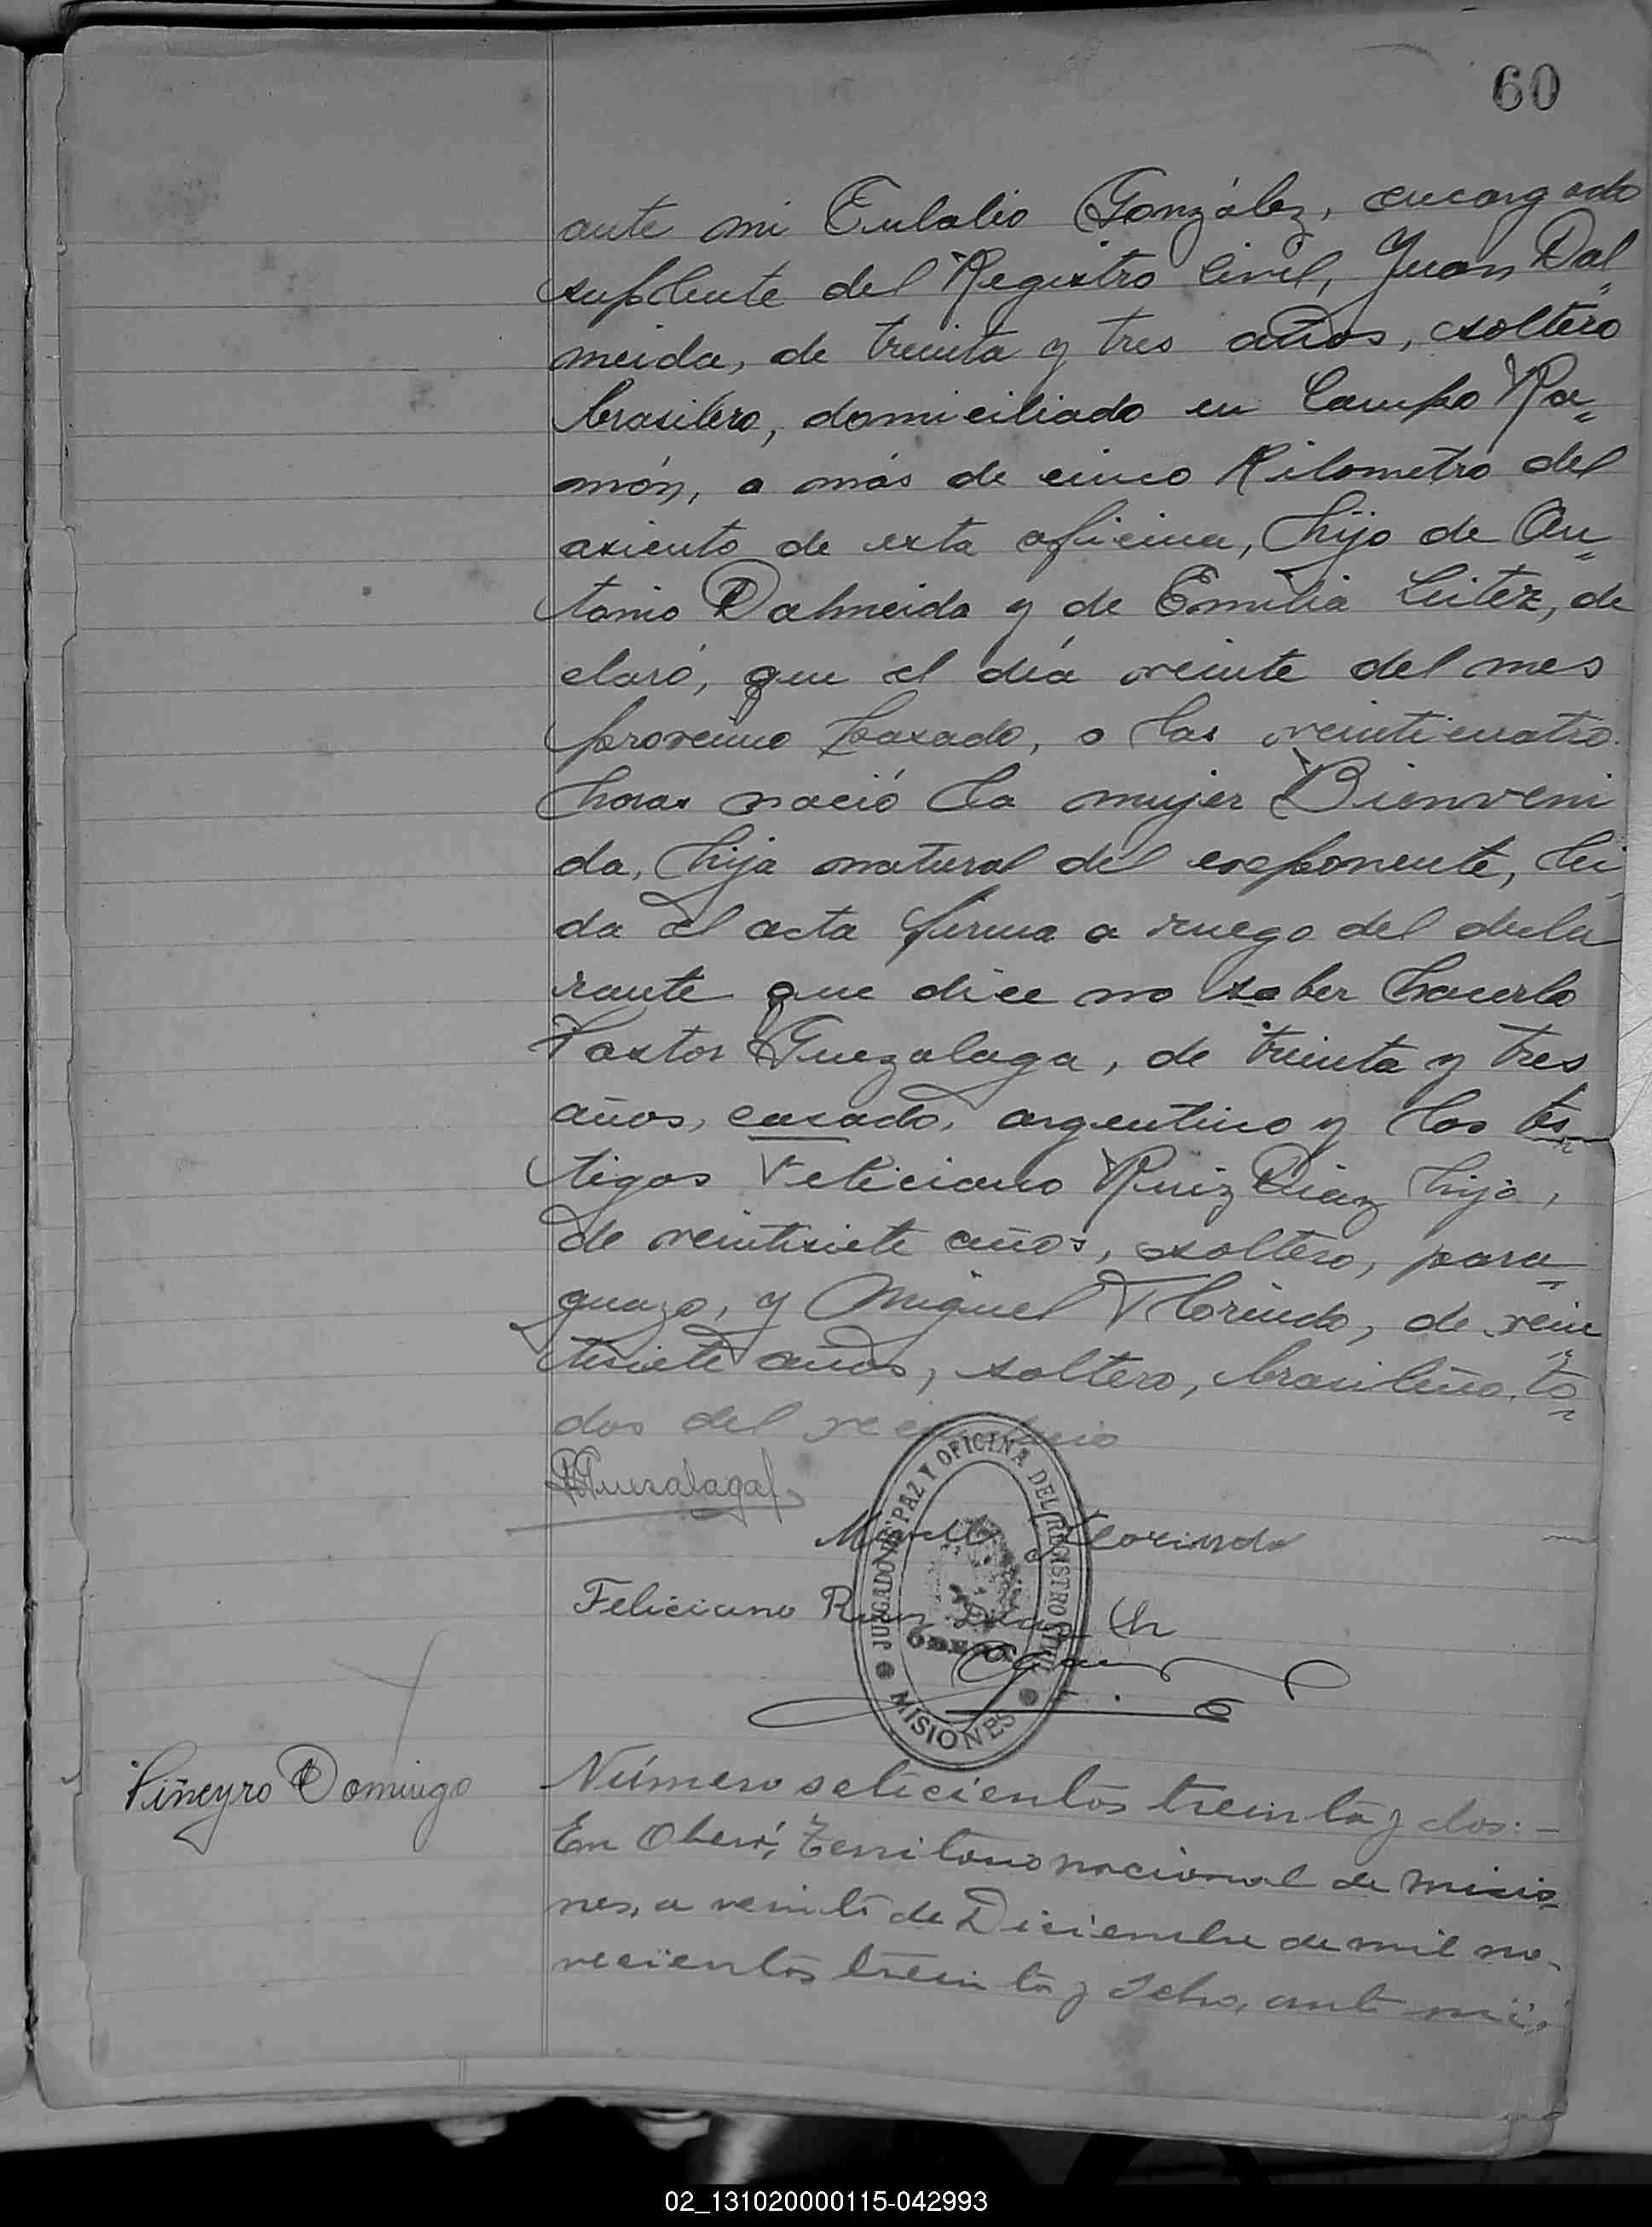 60
ante mi Eulalio González, encargado
suplente del Registro Civil, Juan Dal=
meida, de treinta y tres años, soltero
brasilero, domiciliado en Campo Ra=
món, a más de cinco Kilometro del
asiento de esta oficina, hijo de An=
tonio Dalmeida y de Emilia Leitez, de
claró, que el día veinte del mes
proximo pasado, a las veinticuatro
horas nació la mujer Bienveni
da, hija natural del exponente, lei
da el acta firma a ruego del decla
rante que dice no saber hacerlo
Pastor Guezalaga, de treinta y tres
años, casado, argentino y los tes=
tigos Feliciano Ruiz Diaz hijo,
de veintisiete años, soltero, para=
guayo, y Miguel Florindo, de vein
tisiete años, soltero, brasileño, to=
dos del vecindario
Florindo
Feliciano Ruiz Diaz (h
JUZGADO DE PAZ Y OFICINA DEL REGISTRO CIVIL
MISIONES
Piñeyro Domingo
Número seticientos treinta y dos:-
En Oberá, Territorio nacional de Misio-
nes, a veinte de Diciembre de mil no-
vecientos treinta y ocho, ante mi,
02_131020000115-042993